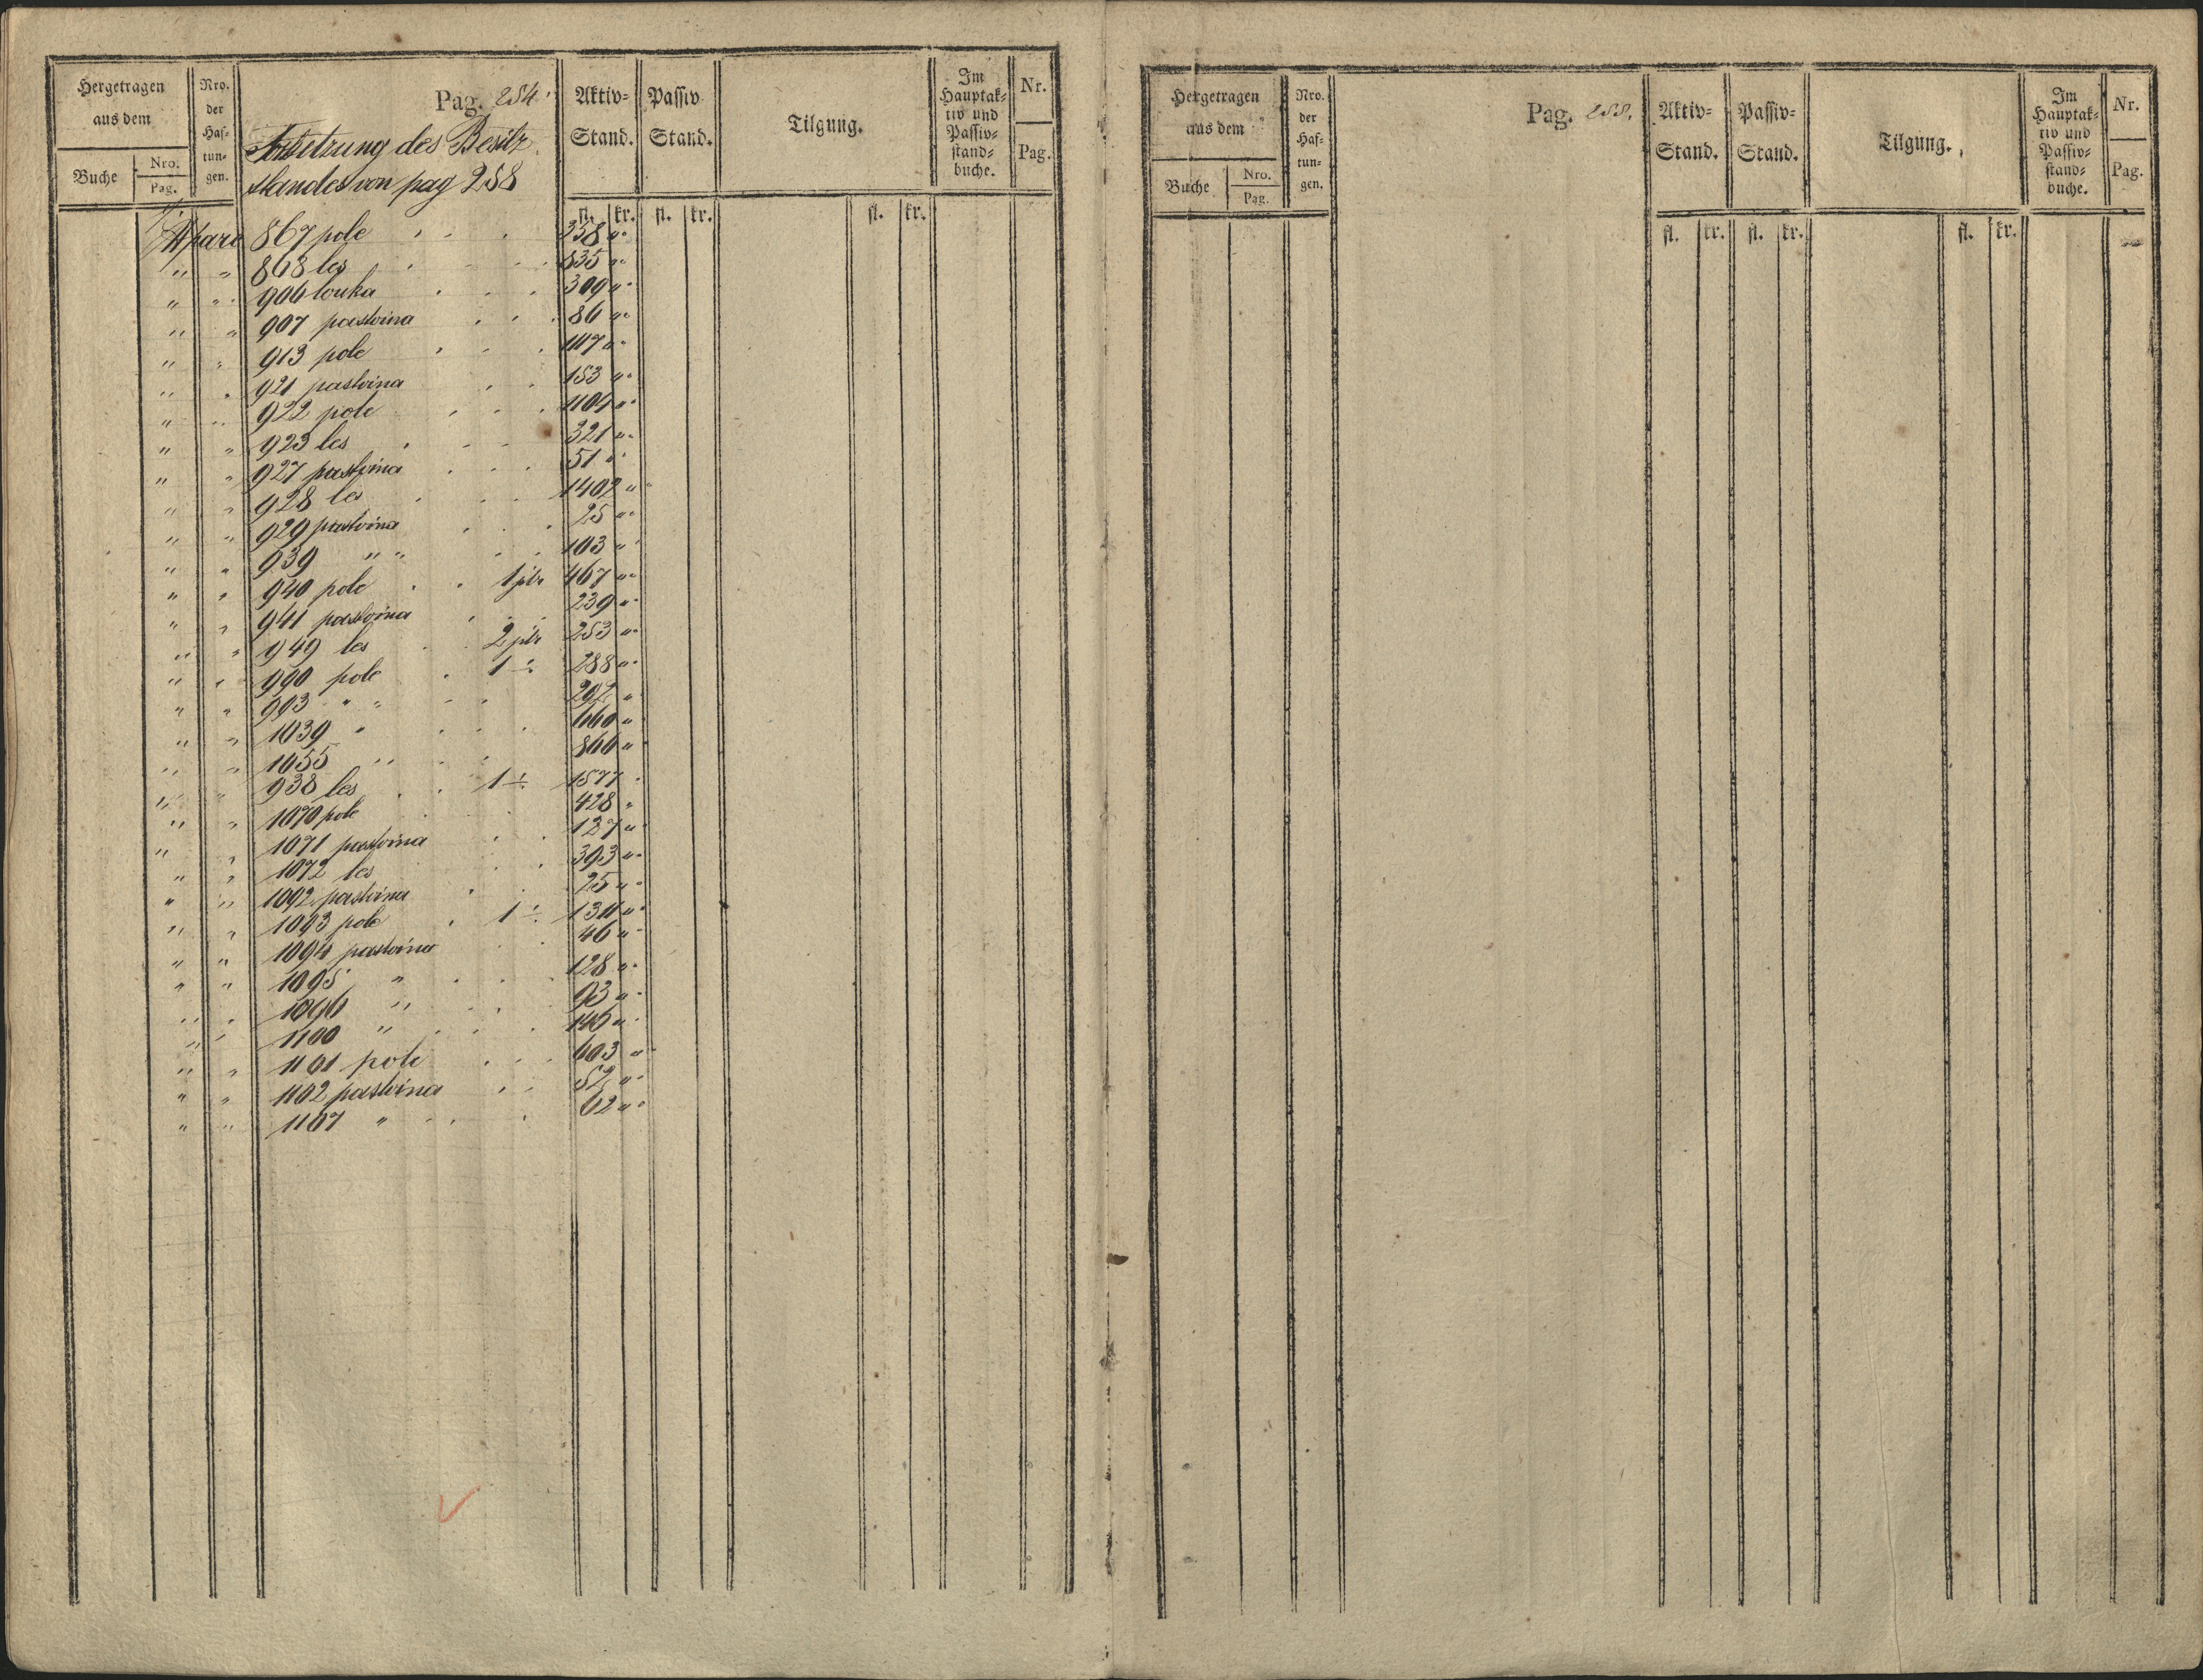 Hergetragen aus dem
Buche Nro. Pag.
Nro. der Haf= tun= gen.
Pag. 254.
Fortsetzung des Besitz
standes von pag 258
Aktiv= Stand.
Passiv Stand.
Tilgung.
Im Hauptak= tiv und Passiv= stand= buche.
Nr. Pag.
fl. kr. fl. kr. fl. kr.
867 pole . . . 358 " "
" " 868 les . . . 835 " "
" " 906 louka . . . 309 " "
" " 907 pastvina . . . 86 " "
" " 913 pole . . . 1117 " "
" " 921 pastvina . . 153 " "
" " 922 pole . . . 1104 " "
" " 923 les . . . 321 " "
" " 927 pastvina . . . 51 " "
" " 928 les . . . 1402 " "
" " 929 pastvina . . . 25 " "
" " 939 " " . . 103 " "
" " 940 pole . . 1 jitr 467 " "
" " 941 pastvina . . . 239 " "
" " 949 les . . 2 jitr 253 " "
" " 990 pole . 1 " 288 " "
" " 993 " " . . 292 "
" " 1039 " . . . 660 "
" " 1055 " . . 866 "
" " 938 les . . 1 " 1577 "
" " 1070 pole . . 428 "
" " 1071 pastvina . . 127 "
" " 1072 les . . 393 " "
" " 1092 pastvina . . 25 " "
" " 1093 pole . 1 " 1311 " "
" " 1094 pastvina . . 46 " "
" " 1095 " . . . 128 " "
" " 1096 " . . 93 " "
" " 1100 " . . . 146 " "
" " 1101 pole . . . 603 " "
" " 1102 pastvina . . 52 " "
" " 1107 " . . . 62 " "
Hergetragen aus dem
Buche Nro. Pag.
Nro. der Haf= tun= gen.
Pag. 255.
Aktiv= Stand.
Passiv= Stand.
Tilgung.
Im Hauptak= tiv und Passiv= stand= buche.
Nr. Pag.
fl. kr. fl. kr. fl. kr.